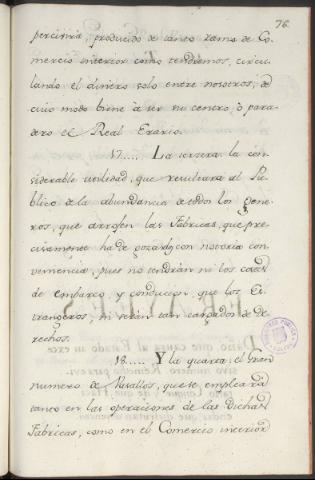 76.
percivirá, producido de tanto ramo de Co-
mercio interior como tendremos, circu-
lando el dinero solo entre nosotros, de
cuio modo viene à ser su centro, ò para-
dero el Real Erario.
17..... La tercera la con-
siderable utilidad, que resultara al Pu-
blico de la abundancia de todos los Gene-
ros, que arrojen las Fabricas, que pre-
cisamente ha de gozar con notoria con-
veniencia, pues no tendràn ni los costos
de embarco, y conducion, que los Es-
trangeros, ni seràn tan cargados de de-
rechos.
18..... Y la quarta, el gran
numero de Vasallos, que se empleará
tanto en las operaciones de las Dichas
Fabricas, como en el Comercio interior